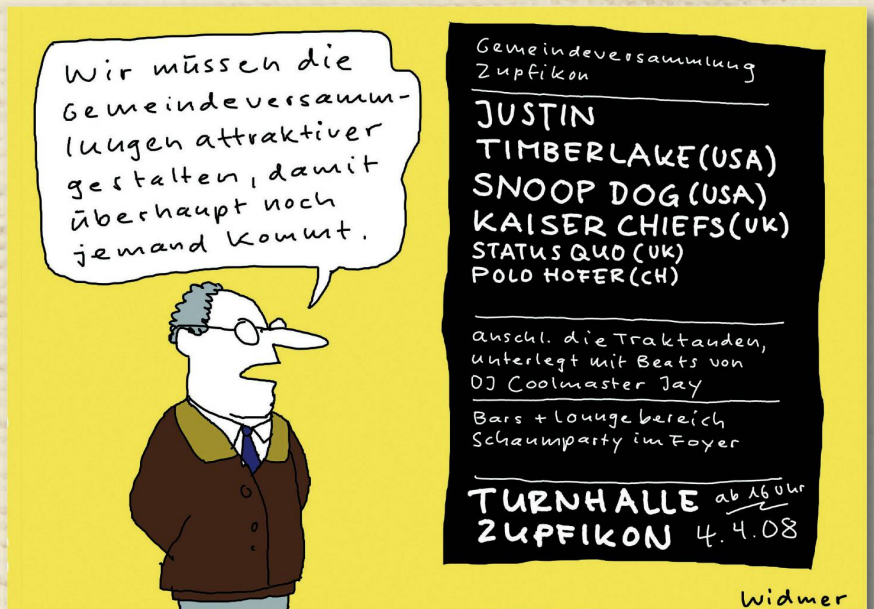 Wir müssen die
Gemeindeversamm-
lungen attraktiver
gestalten, damit
überhaupt noch
jemand kommt.
Gemeindeversammlung
Zupfikon
JUSTIN
TIMBERLAKE (USA)
SNOOP DOG (USA)
KAISER CHIEFS (UK)
STATUS QUO (UK)
POLO HOFER (CH)
anschl. die Traktanden,
unterlegt mit Beats von
DJ Coolmaster Jay
Bars + Loungebereich
Schaumparty im Foyer
TURNHALLE ab 16 Uhr
ZUPFIKON 4.4.08
Widmer